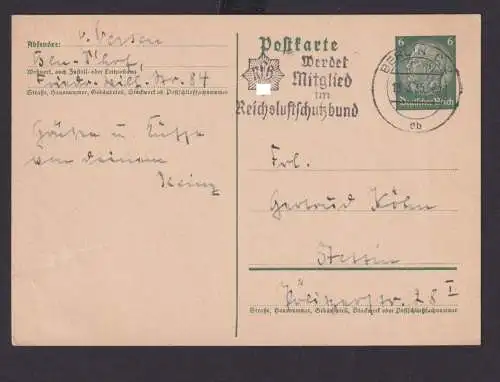 Absender: v. Versen
Wohnort, auch Zustell- oder Leitpostamt
Str. 84
Straße, Hausnummer, Gebäudeteil, Stockwerk od. Postschließfachnummer
Grüße u. Küsse
von Deinem
Heinz
Postkarte
Werdet
Mitglied
im
Reichsluftschutzbund
BERLIN
6
6
Deutsches Reich
Frl.
Gertrud Köhn
Stettin
Pölitzerstr. 28 I
Straße, Hausnummer, Gebäudeteil, Stockwerk oder Postschließfachnummer